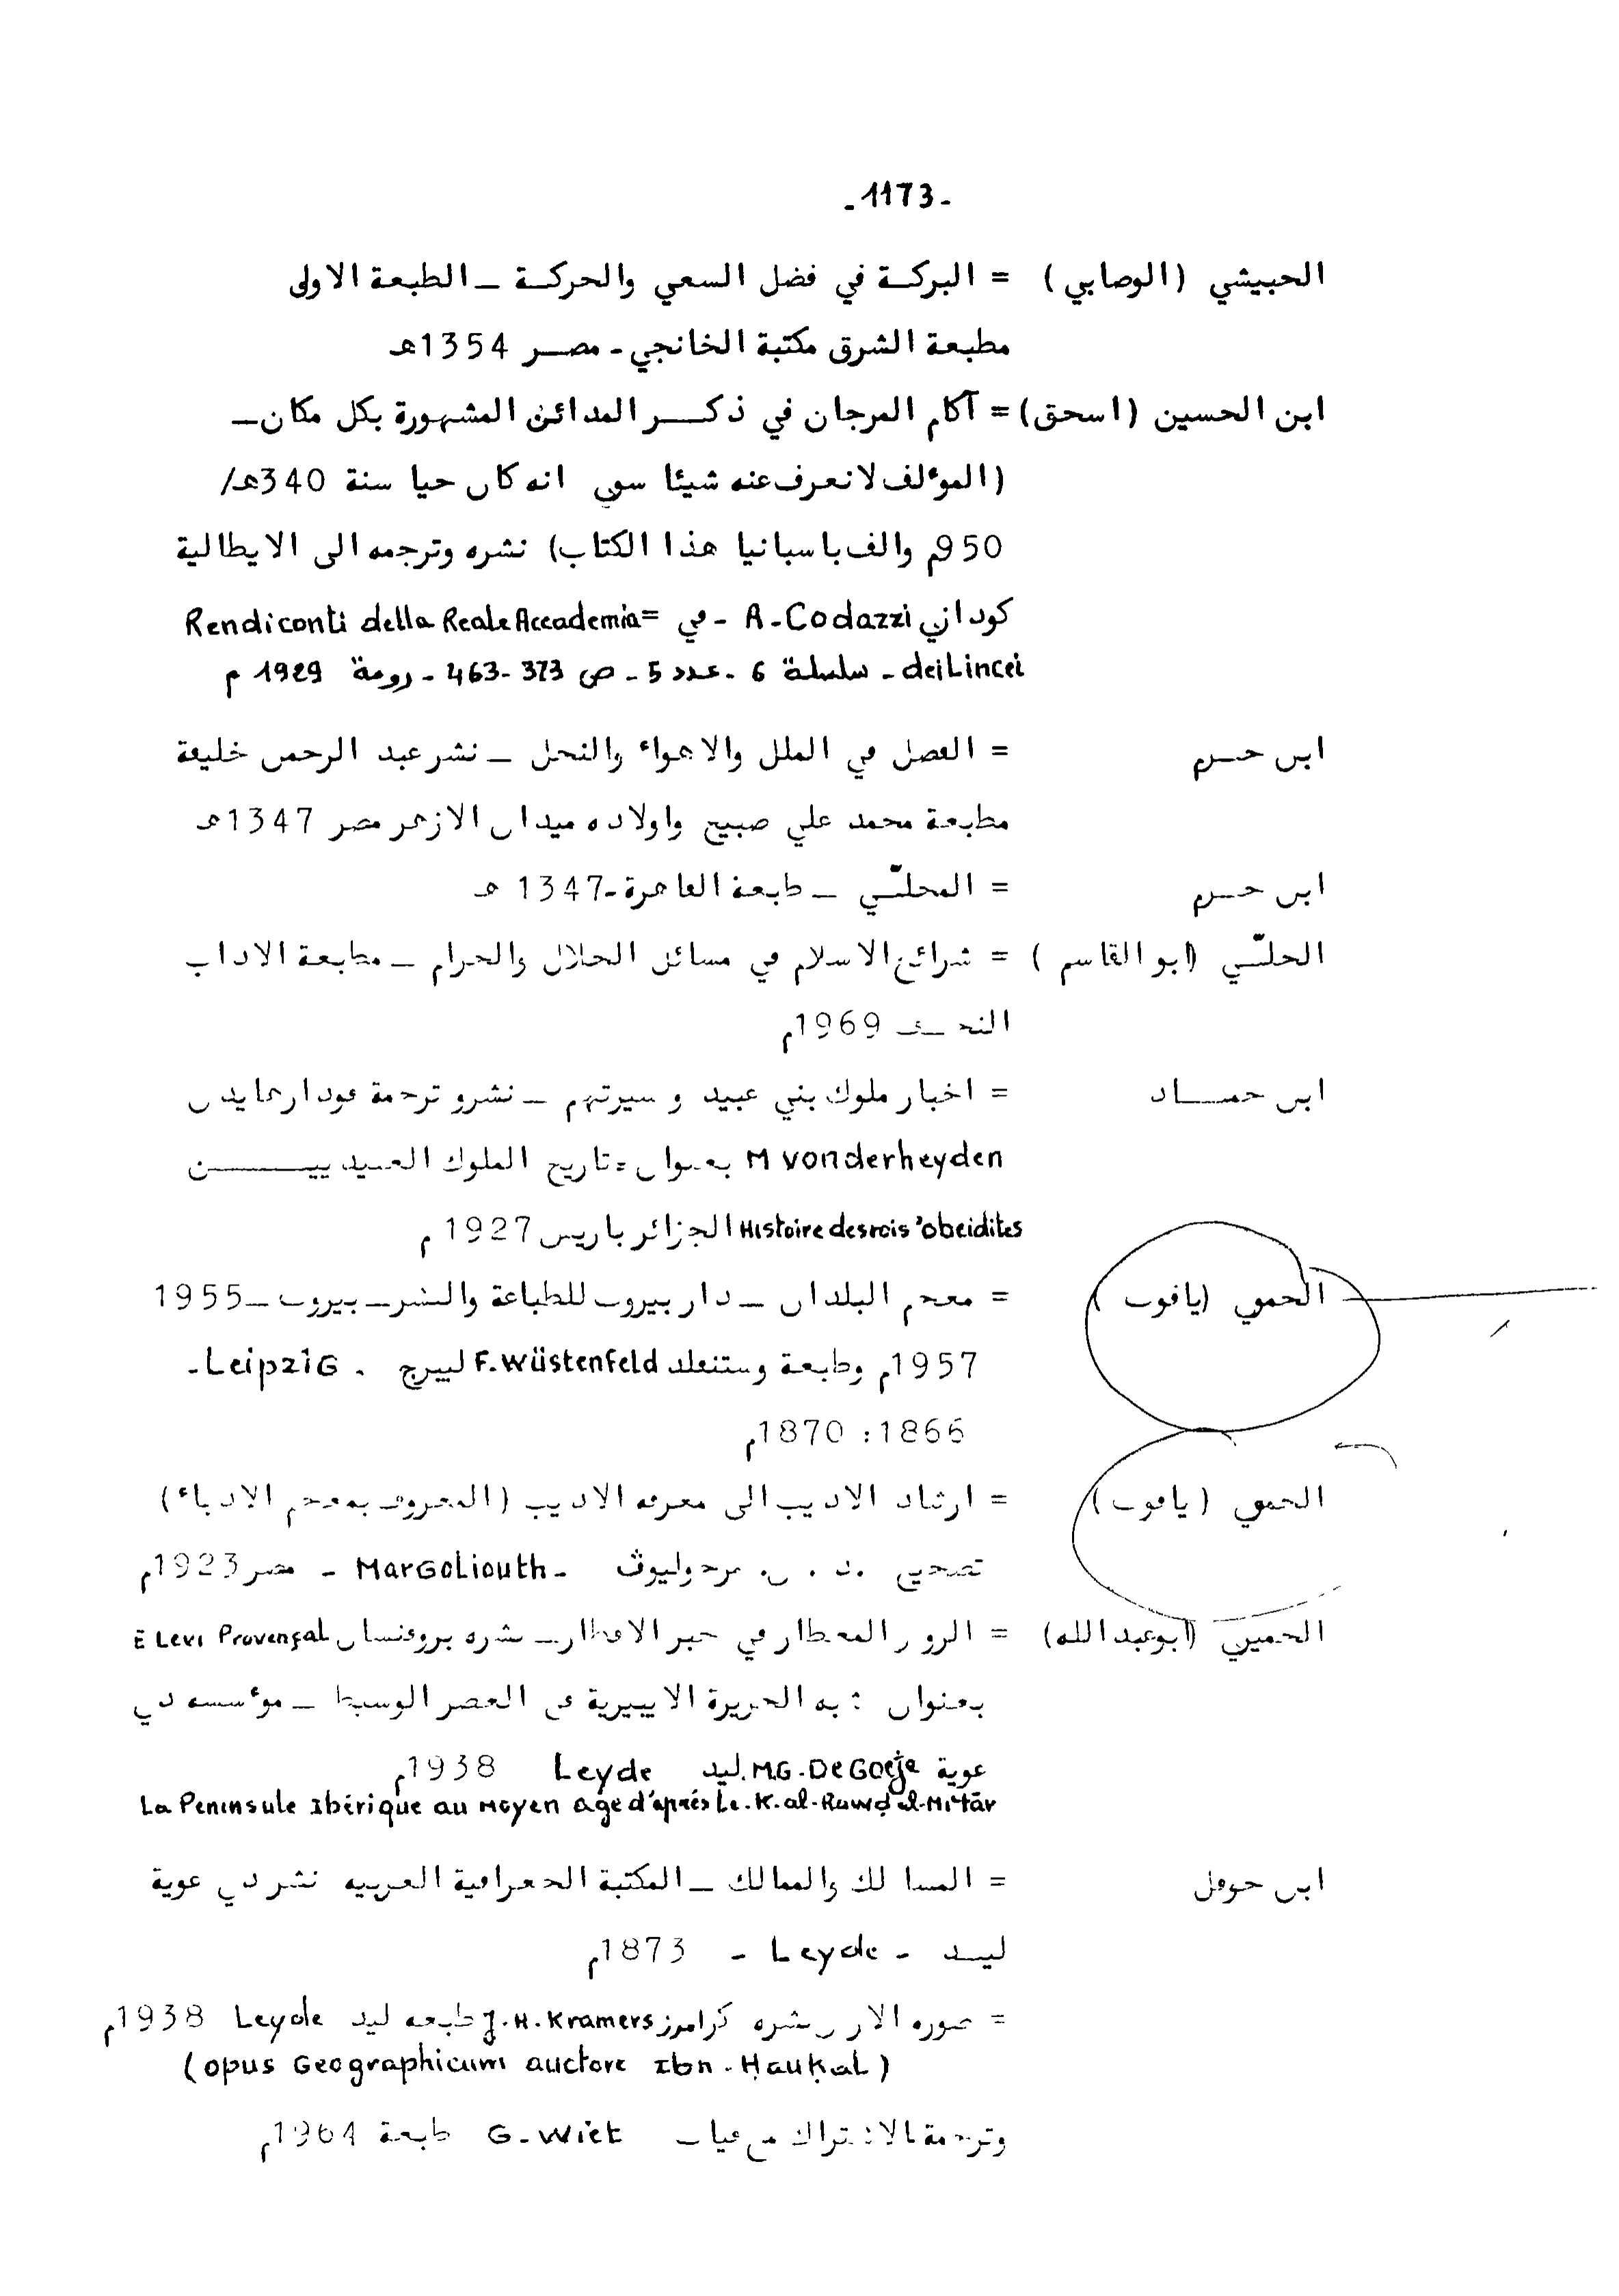 -1173-
الحبيشي (الوصابي) = البركة في فضل السعي والحركة – الطبعة الاولى
مطبعة الشرق مكتبة الخانجي – مصر 1354هـ
ابن الحسين (اسحق) = آكام المرجان في ذكر المدائن المشهورة بكل مكان –
(الموٴلف لا نعرف عنه شيئا سوى انه كان حيا سنة 340هـ/
950م والف باسبانيا هذا الكتاب) نشره وترجمه الى الايطالية
كوداتي A-Codazzi - في = Rendiconti della Reale Accademia
dei Lincei - سلسلة 6 - عدد 5 - ص 373-463 - رومة 1929 م
ابن حزم = الفصل في الملل والاهواء والنحل – نشر عبد الرحمن خليفة
مطبعة محمد علي صبيح واولاده ميدان الازهر مصر 1347هـ
ابن حزم = المحلّى – طبعة القاهرة - 1347 هـ
الحلّي (ابو القاسم) = شرائع الاسلام في مسائل الحلال والحرام – مطبعة الاداب
النجف 1969م
ابن حماد = اخبار ملوك بني عبيد وسيرتهم – نشر وترجمة فودارهايدن
M vonderheyden بعنوان = تاريخ الملوك العبيديين
Histoire des rois 'obeidites الجزائر باريس 1927 م
الحموي (ياقوت) = معجم البلدان – دار بيروت للطباعة والنشر – بيروت – 1955
1957م وطبعة وستنفلد F. Wüstenfeld ليبزج . LeipziG -
1866 : 1870م
الحموي (ياقوت) = ارشاد الاديب الى معرفة الاديب (المعروف بمعجم الادباء)
تصحيح .د . س. مرجوليوث - MarGoliouth - مصر 1923م
الحميري (ابو عبد الله) = الروض المعطار في خبر الاقطار – نشره بروفنسال E Levi Provençal
بعنوان : به الجزيرة الايبيرية في العصر الوسيط – موٴسسه دي
غوية M.G. De Goeje ليد Leyde 1938م
La Peninsule Ibérique au Moyen age d'après Le. K. al-Rawḍ el-Mi'tār
ابن حوقل = المسالك والممالك – المكتبة الجغرافية العربيه نشر دي غوية
ليد - Leyde - 1873م
= صوره الارض نشره كرامرز J. H. Kramers طبعه ليد Leyde 1938م
(opus Geographicum auctore Ibn - Ḥauḳal)
وترجمة بالاشتراك مع فيات G. Wiet طبعة 1964م